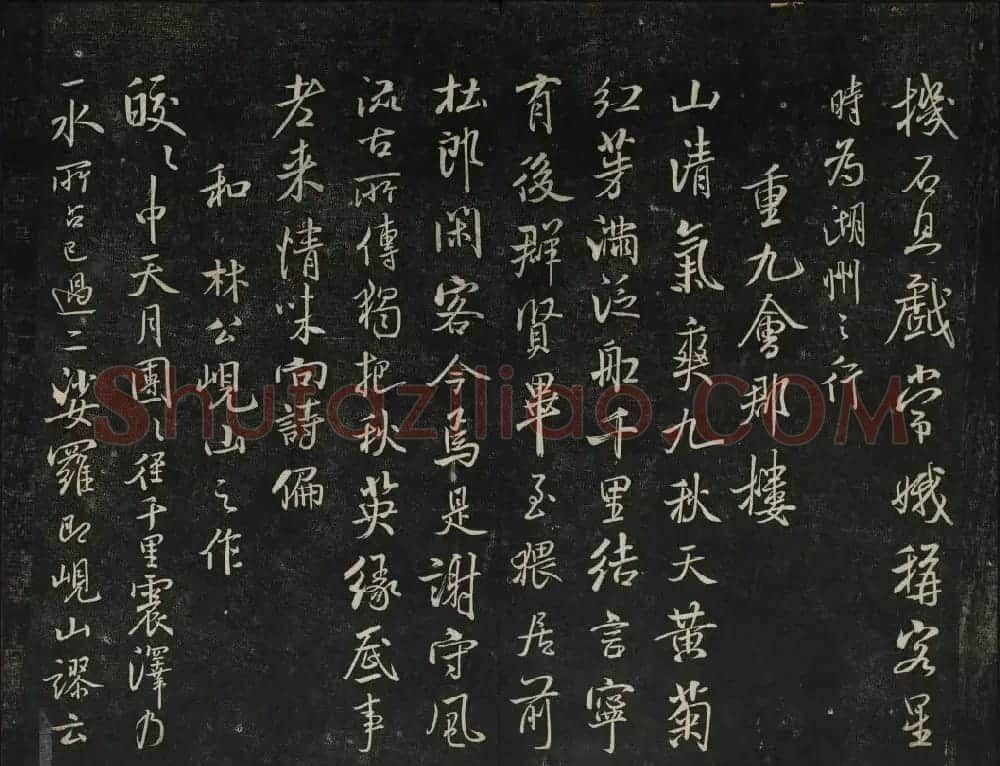 機石息戲常娥稱客星
時為湖州之行
重九會郡樓
山清氣爽九秋天黃菊
紅茱滿泛船千里結言寧
有後群賢畢至猥居前
杜郎閑客今焉是謝守風
流古所傳獨把秋英緣底事
老来情味向詩偏
和林公峴山之作
皎〻中天月團〻徑千里震澤乃
一水所占已過二娑羅即峴山謬云
Shufaziliao.COM